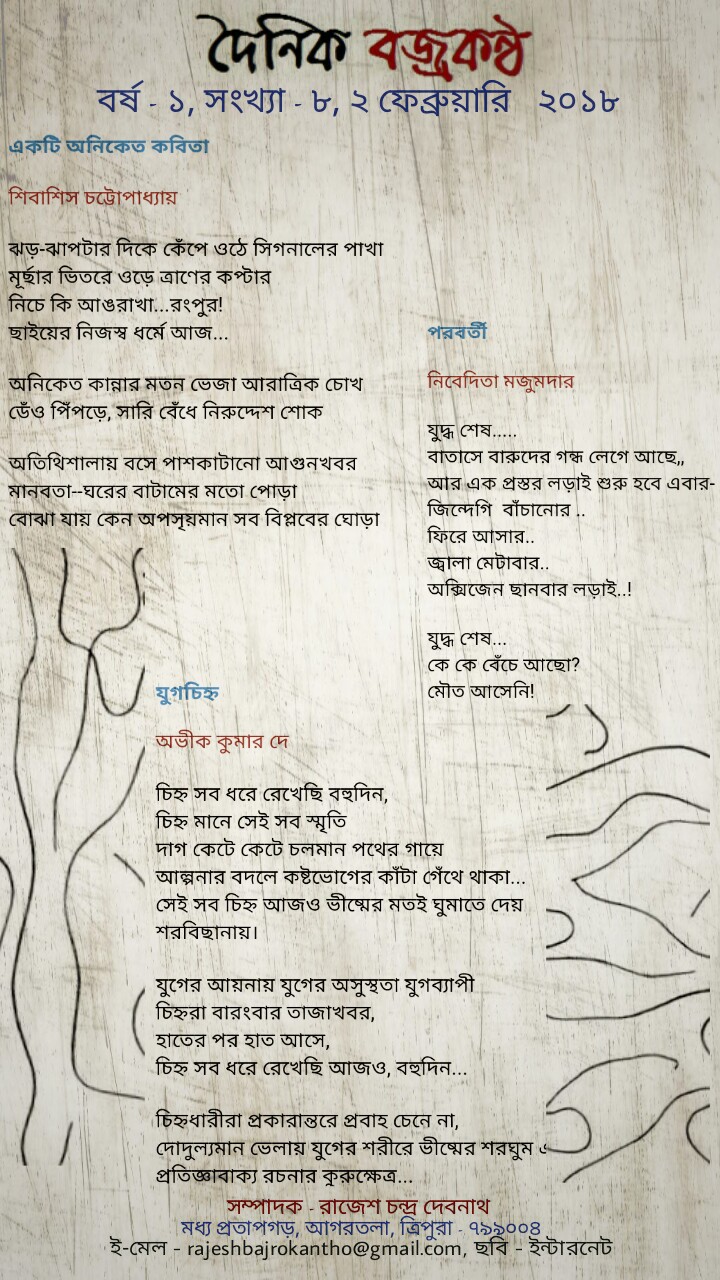 দৈনিক বজ্রকন্ঠ
বর্ষ - ১, সংখ্যা - ৮, ২ ফেব্রুয়ারি ২০১৮
একটি অনিকেত কবিতা
শিবাশিস চট্টোপাধ্যায়
ঝড়-ঝাপটার দিকে কেঁপে ওঠে সিগনালের পাখা
মূর্ছার ভিতরে ওড়ে ত্রাণের কপ্টার
নিচে কি আঙরাখা...রংপুর!
ছাইয়ের নিজস্ব ধর্মে আজ...
অনিকেত কান্নার মতন ভেজা আরাত্রিক চোখ
ডেঁও পিঁপড়ে, সারি বেঁধে নিরুদ্দেশ শোক
অতিথিশালায় বসে পাশকাটানো আগুনখবর
মানবতা--ঘরের বাটামের মতো পোড়া
বোঝা যায় কেন অপসৃয়মান সব বিপ্লবের ঘোড়া
পরবর্তী
নিবেদিতা মজুমদার
যুদ্ধ শেষ.....
বাতাসে বারুদের গন্ধ লেগে আছে,,
আর এক প্রস্তর লড়াই শুরু হবে এবার-
জিন্দেগি বাঁচানোর ..
ফিরে আসার..
জ্বালা মেটাবার..
অক্সিজেন ছানবার লড়াই..!
যুদ্ধ শেষ...
কে কে বেঁচে আছো?
মৌত আসেনি!
যুগচিহ্ন
অভীক কুমার দে
চিহ্ন সব ধরে রেখেছি বহুদিন,
চিহ্ন মানে সেই সব স্মৃতি
দাগ কেটে কেটে চলমান পথের গায়ে
আল্পনার বদলে কষ্টভোগের কাঁটা গেঁথে থাকা...
সেই সব চিহ্ন আজও ভীষ্মের মতই ঘুমাতে দেয়
শরবিছানায়।
যুগের আয়নায় যুগের অসুস্থতা যুগব্যাপী
চিহ্নরা বারংবার তাজাখবর,
হাতের পর হাত আসে,
চিহ্ন সব ধরে রেখেছি আজও, বহুদিন...
চিহ্নধারীরা প্রকারান্তরে প্রবাহ চেনে না,
দোদুল্যমান ভেলায় যুগের শরীরে ভীষ্মের শরঘুম
প্রতিজ্ঞাবাক্য রচনার কুরুক্ষেত্র...
সম্পাদক - রাজেশ চন্দ্র দেবনাথ
মধ্য প্রতাপগড়, আগরতলা, ত্রিপুরা - ৭৯৯০০৪
ই-মেল - rajeshbajrokantho@gmail.com, ছবি - ইন্টারনেট